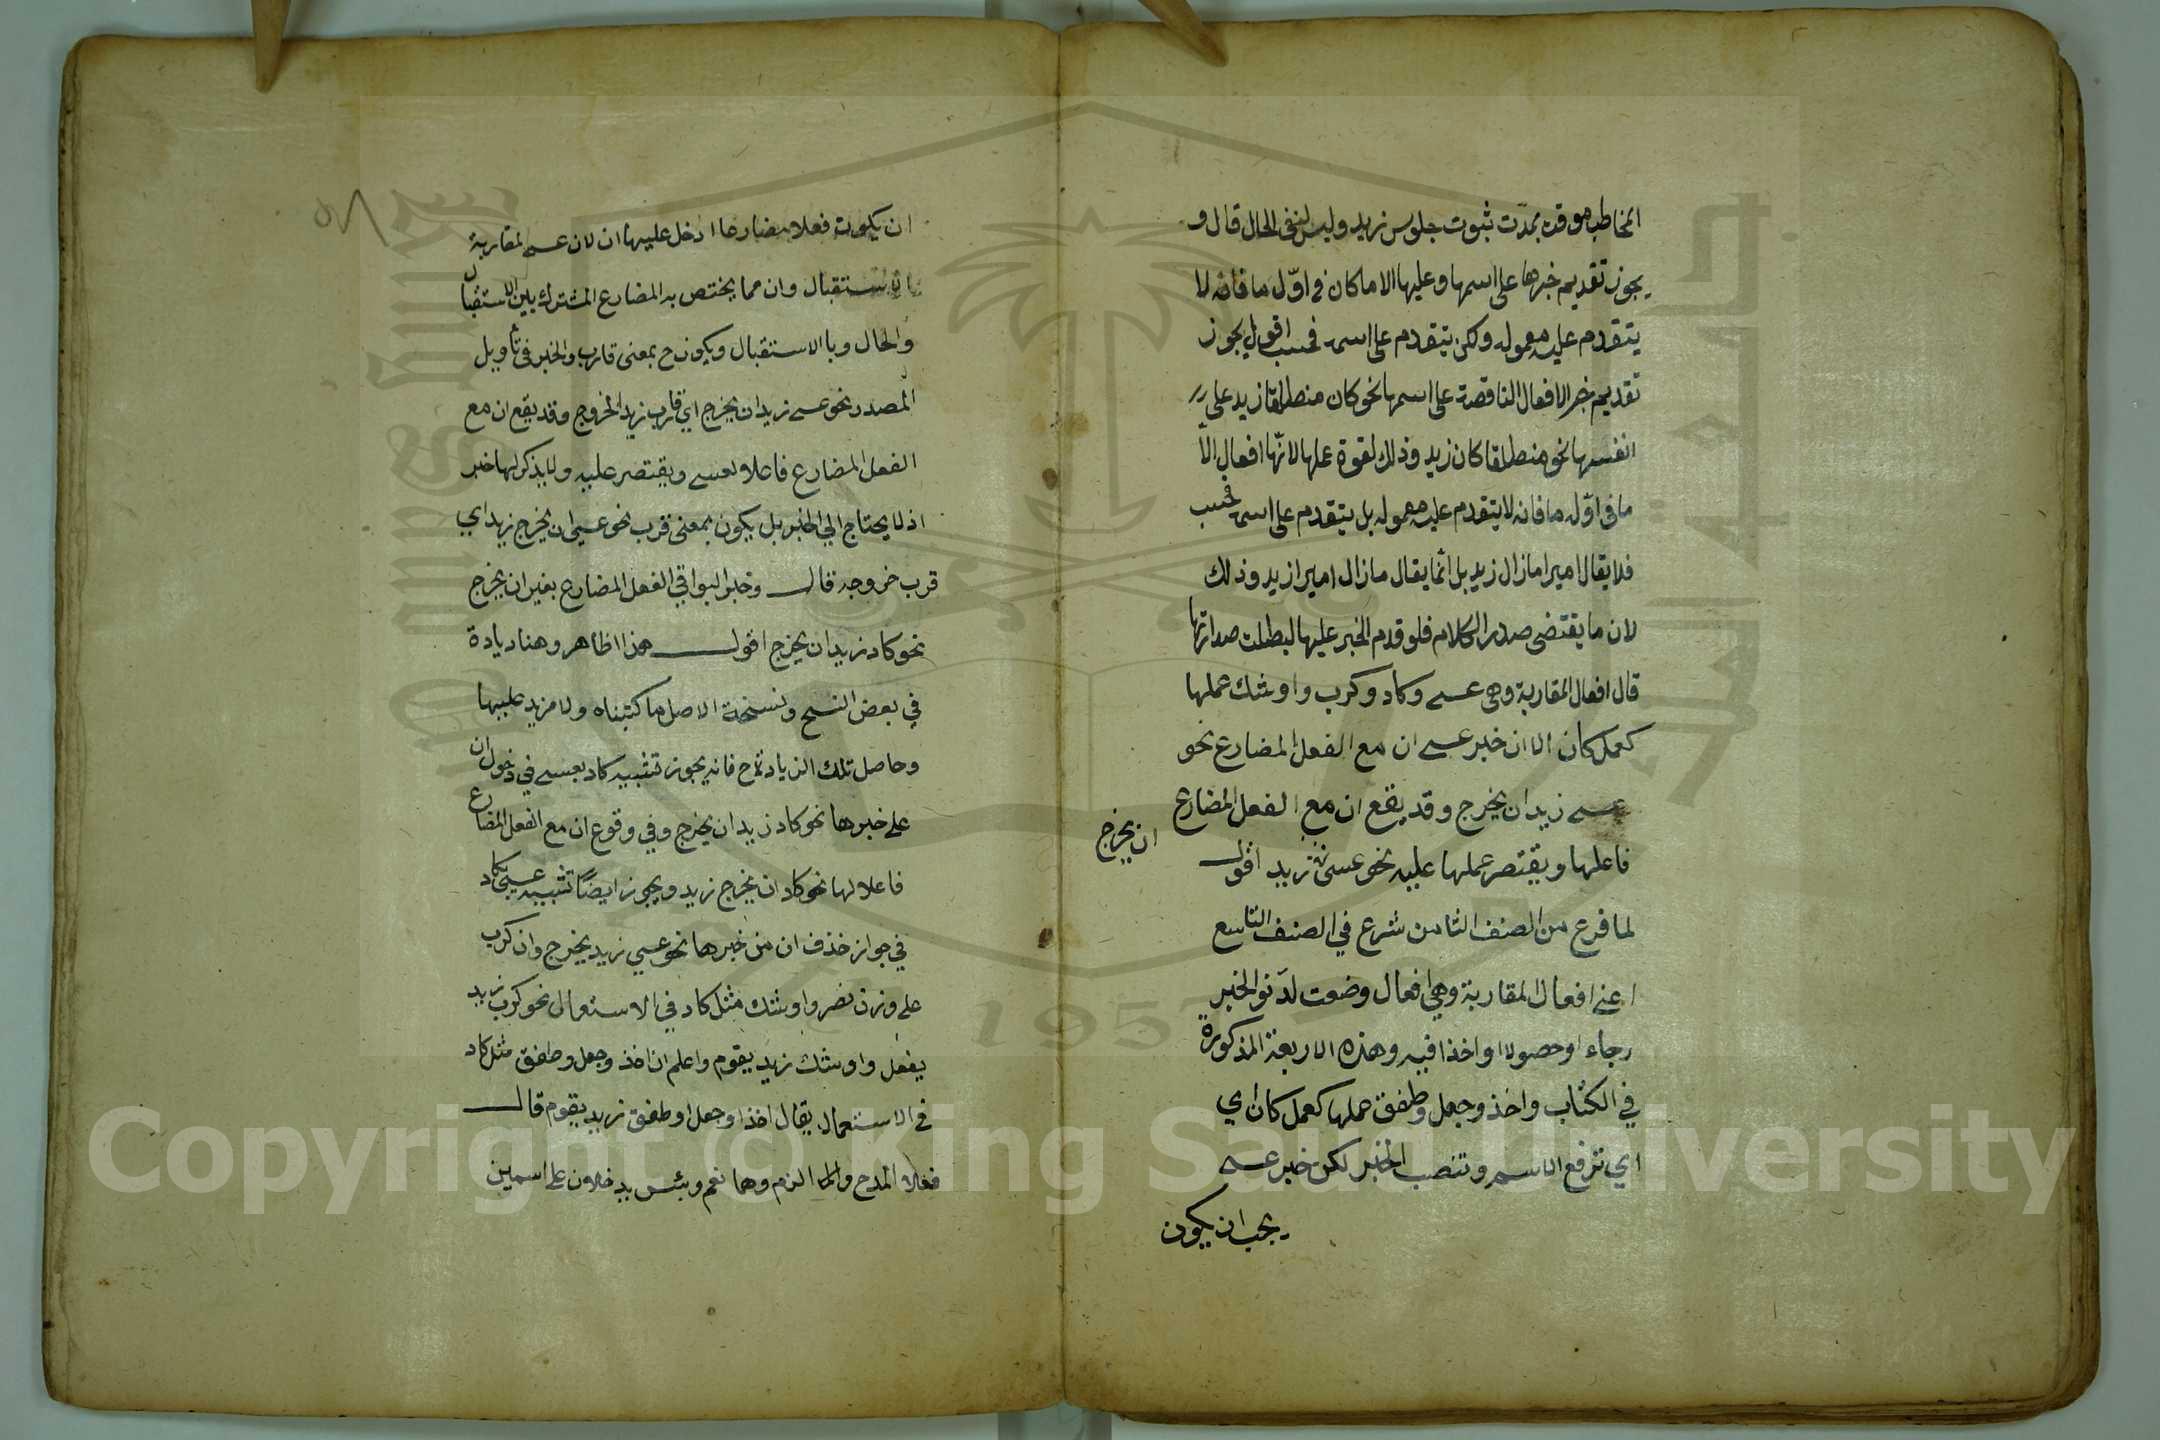 المخاطب موقده بمدّت ثبوت جلوس زيد وليس لنفى الحال قال و
يجوز تقديم خبرها على اسمها وعليها الا ما كان فى اوّل ما فانه لا
يتقدم عليه معموله ولكن يتقدم على اسمه فحسب اقول يجوز
تقديم خبر الافعال الناقصة على اسمها نحو كان منطلقا زيد على
انفسها نحو منطلقا كان زيد وذلك لقوة عملها لانّها افعال الاّ
ما فى اوّله ما فانه لا يتقدم عليه معموله بل يتقدم على اسمه فحسب
فلا يقال اميرا مازال زيد بل انّما يقال مازال اميرا زيد وذلك
لان ما يقتضى صدر الكلام فلو قدم الخبر عليها لبطلت صدارتها
قال افعال المقاربة وهى عسى وكاد وكرب واوشك عملها
كعمل كان الا ان خبر عسى ان مع الفعل المضارع نحو
عسى زيد ان يخرج وقد يقع ان مع الفعل المضارع
ان يخرج
فاعلها ويقتصر عملها عليه نحو عسى زيد اقول
لما فرغ من الصنف الثامن شرع في الصنف التاسع
اعنى افعال المقاربة وهي افعال وضعت لدنو الخبر
رجاء او حصولا او اخذا فيه وهذه الاربعة المذكورة
في الكتاب واخذ وجعل وطفق عملها كعمل كان اي
اي ترفع الاسم وتنصب الخبر لكن خبر عسى
يجب ان يكون
ان يكون فعلا مضارعا ادخل عليها ان لان عسى لمقاربة
الاستقبال وان مما يختص به المضارع المشترك بين الاستقبال
والحال وبا الاستقبال ويكون ح بمعنى قارب والخبر فى تأويل
المصدر نحو عسى زيد ان يخرج اى قارب زيد الخروج وقد يقع ان مع
الفعل المضارع فاعلا لعسى ويقتصر عليه ولا يذكر لها خبر
اذ لا يحتاج الي الخبر بل يكون بمعنى قرب نحو عسى ان يخرج زيد اي
قرب خروجه قال وخبر البواقي الفعل المضارع بغير ان يخرج
نحو كاد زيد ان يخرج اقول هذا ظاهر وهنا ديادة
في بعض النسخ ونسخة الاصل ما كتبناه ولا مزيد عليها
وحاصل تلك الزيادة ح فانه يجوز تشبيه كاد بعسى في دخول ان
على خبرها نحو كاد زيد ان يخرج وفي وقوع ان مع الفعل المضارع
فاعلا لها نحو كاد ان يخرج زيد ويجوز ايضًا تشبيه عسى بكاد
في جواز حذف ان من خبرها نحو عسي زيد يخرج وان كرب
على وزن نصر واوشك مثل كاد في الاستعمال نحو كرب زيد
يفعل واوشك زيد يقوم واعلم ان اخذ وجعل وطفق مثل كاد
فى الاستعمال يقال اخذ او جعل او طفق زيد يقوم قال
فعلا المدح والذم وهما نعم وبئس يدخلان على اسمين
1957
Copyright © King Saud University